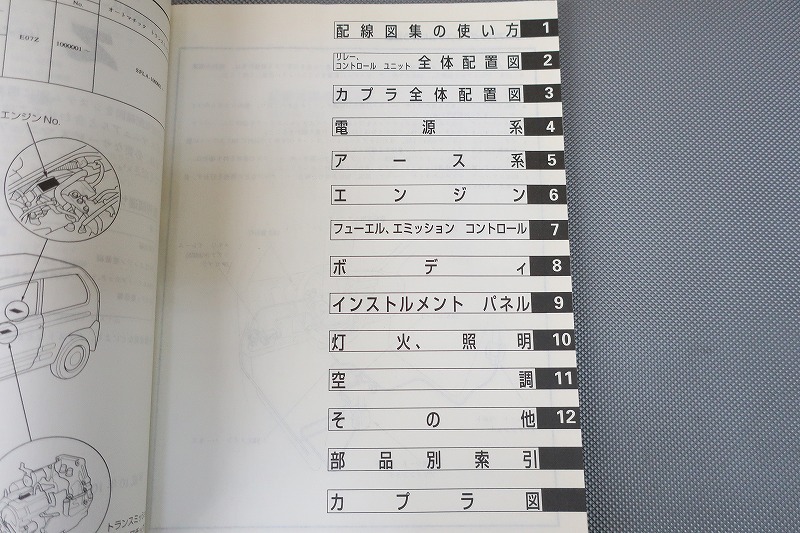 No.
オートマチック
E07Z
1000001
エンジンNo.
トランスミッシ
配線図集の使い方 1
リレー、
コントロール ユニット 全体配置図 2
カプラ全体配置図 3
電源系 4
アース系 5
エンジン 6
フューエル、エミッション コントロール 7
ボディ 8
インストルメント パネル 9
灯火、照明 10
空調 11
その他 12
部品別索引
カプラ図